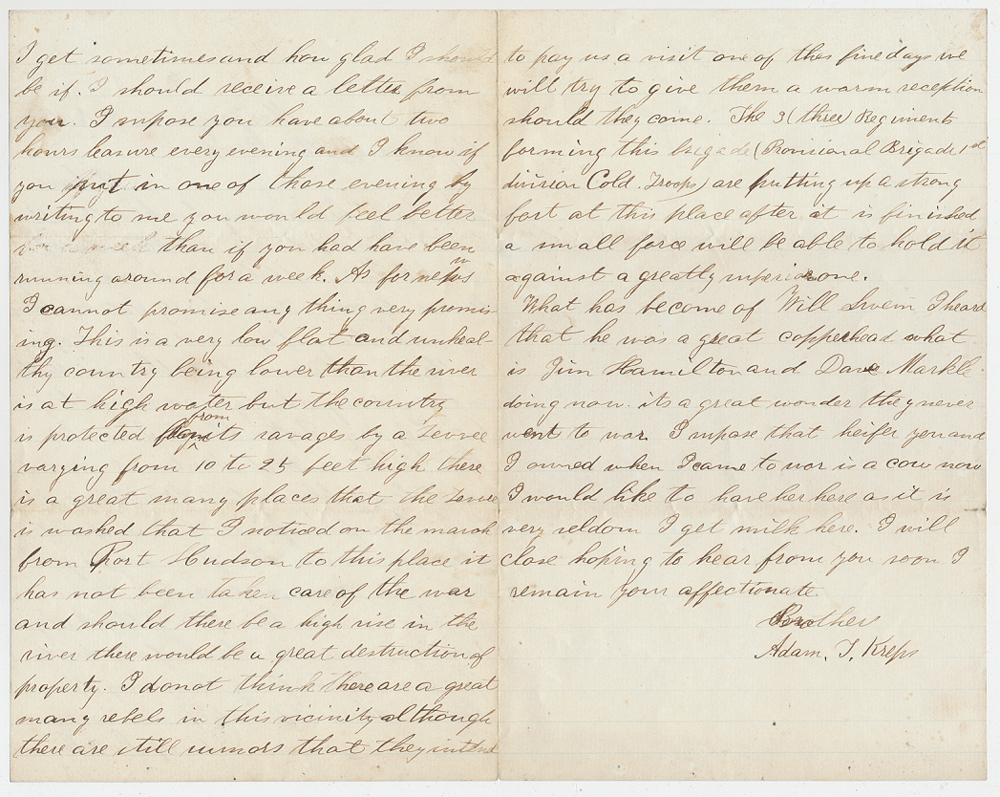 I get sometimes and how glad I should
be if I should receive a letter from
you. I supose you have about two
hours leasure every evening and I know if
you put in one of those evening by
writing to me you would feel better
than if you had have been
running around for a week. As for news
I cannot promise any thing very promis-
ing. This is a very low flat and unheal-
thy country being lower than the river
is at high water but the country
is protected from its ravages by a levee
varying from 10 to 25 feet high there
is a great many places that the levee
is washed that I noticed on the march
from Port Hudson to this place it
has not been taken care of the war
and should there be a high rise in the
river there would be a great destruction of
property. I do not think there are a great
many rebels in this vicinity although
there are still rumors that they intend
to pay us a visit one of thes fine days we
will try to give them a warm reception
should they come. The 3 (three) Regiments
forming this brigade (Provisional Brigade 1st
division Cold. Troops) are putting up a strong
fort at this place after it is finished
a small force will be able to hold it
against a greatly superior one.
What has become of Will I heard
that he was a great copperhead what
is Jim Hamilton and Dave Markle
doing now. its a great wonder they never
went to war. I supose that heifer you and
I owned when I came to war is a cow now
I would like to have her here as it is
very seldom I get milk here. I will
close hoping to hear from you soon I
remain your affectionate
Brother
Adam. T. Kreps